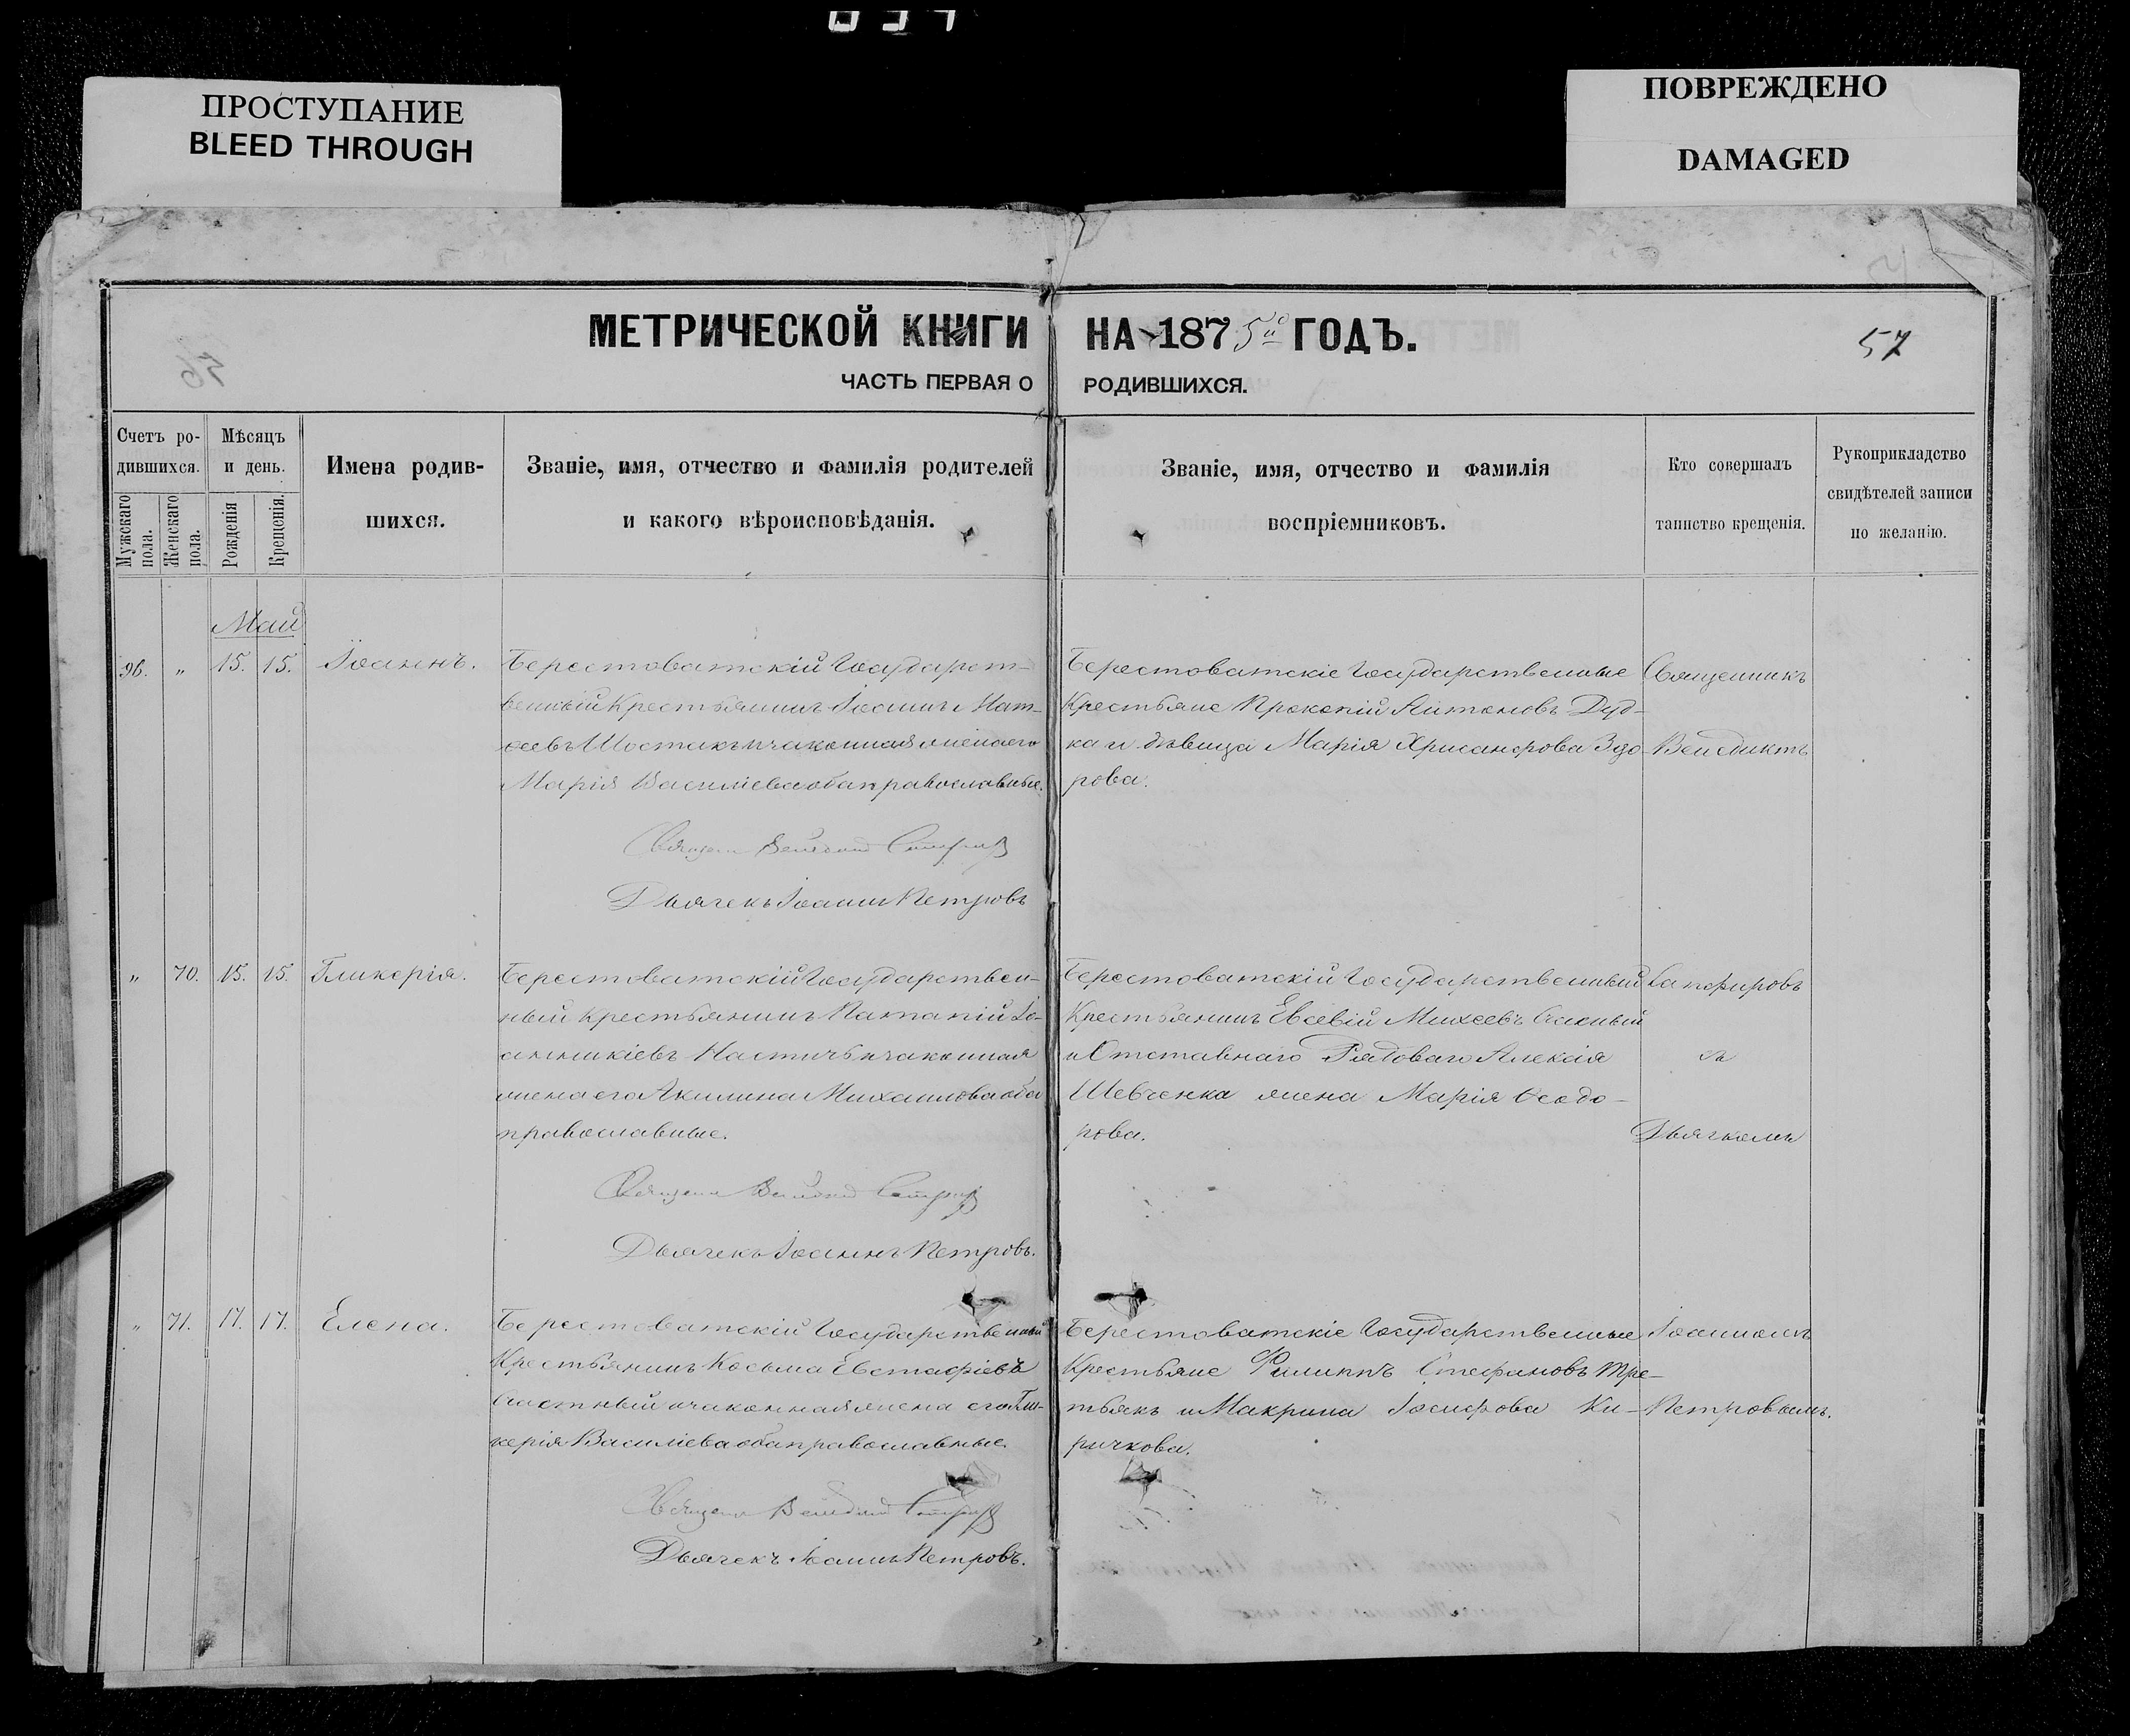 ПРОСТУПАНИЕ
BLEED THROUGH
ПОВРЕЖДЕНО
DAMAGED
МЕТРИЧЕСКОЙ КНИГИ НА 1875й ГОДЪ.
57
ЧАСТЬ ПЕРВАЯ О РОДИВШИХСЯ.
Счетъ ро-
дившихся.
Мужскаго пола.
Женскаго пола.
Мѣсяцъ
и день.
Рожденія
Крещенія.
Имена родив-
шихся.
Званіе, имя, отчество и фамилія родителей
и какого вѣроисповѣданія.
Званіе, имя, отчество и фамилія
воспріемниковъ.
Кто совершалъ
таинство крещенія.
Рукоприкладство
свидѣтелей записи
по желанію.
Май
96. „ 15. 15. Іоаннъ.
Берестоватскій Государст-
венный Крестьянинъ Іоаннъ Мат-
ѳеевъ Шостакъ и законная жена его
Марія Василіева оба православные.
Дьячекъ Іоаннъ Петровъ
Берестоватскіе Государственные
Крестьяне Прокопій Антоновъ Дуд-
ка и дѣвица Марія Хрисанфова Здо-
рова.
Священникъ
Венедиктъ
„ 70. 15. 15. Гликерія.
Берестоватскій Государствен-
ный крестьянинъ Потапій Іо-
анникіевъ и законная
жена его Акилина Михаилова оба
православные.
Дьячекъ Іоаннъ Петровъ.
Берестоватскій Государственный
Крестьянинъ Евсевій Михеевъ
и Отставнаго Рядоваго Алексія
Шевченка жена Марія Ѳеодо-
рова.
Сапфировъ
съ
Дьячкомъ
„ 71. 17. 17. Елена.
Берестоватскій Государственный
Крестьянинъ Косьма Евстафіевъ
и законная жена его Гли-
керія Василіева оба православные.
Дьячекъ Іоаннъ Петровъ.
Берестоватскіе Государственные
Крестьяне Филиппъ Стефановъ Тре-
тьякъ и Макрина Іосифова Ки-
ричкова.
Іоанномъ
Петровымъ.